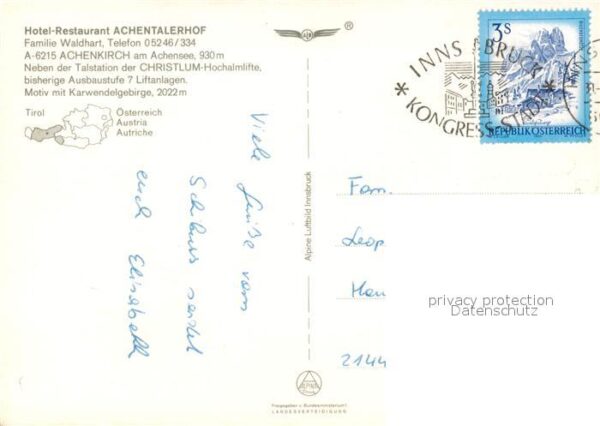 Hotel-Restaurant ACHENTALERHOF
Familie Waldhart, Telefon 05246/334
A-6215 ACHENKIRCH am Achensee, 930 m
Neben der Talstation der CHRISTLUM-Hochalmlifte,
bisherige Ausbaustufe 7 Liftanlagen.
Motiv mit Karwendelgebirge, 2022 m
Tirol
Österreich
Austria
Autriche
®
INNSBRUCK
* KONGRESS-STADT *
3S
REPUBLIK ÖSTERREICH
Viele Grüße vom
Schikurs sendet
euch Elisabeth
Alpine Luftbild Innsbruck
Fam.
Leop
Hau
2144
privacy protection
Datenschutz
ALPINE
Freigegeben v. Bundesministerium f.
LANDESVERTEIDIGUNG